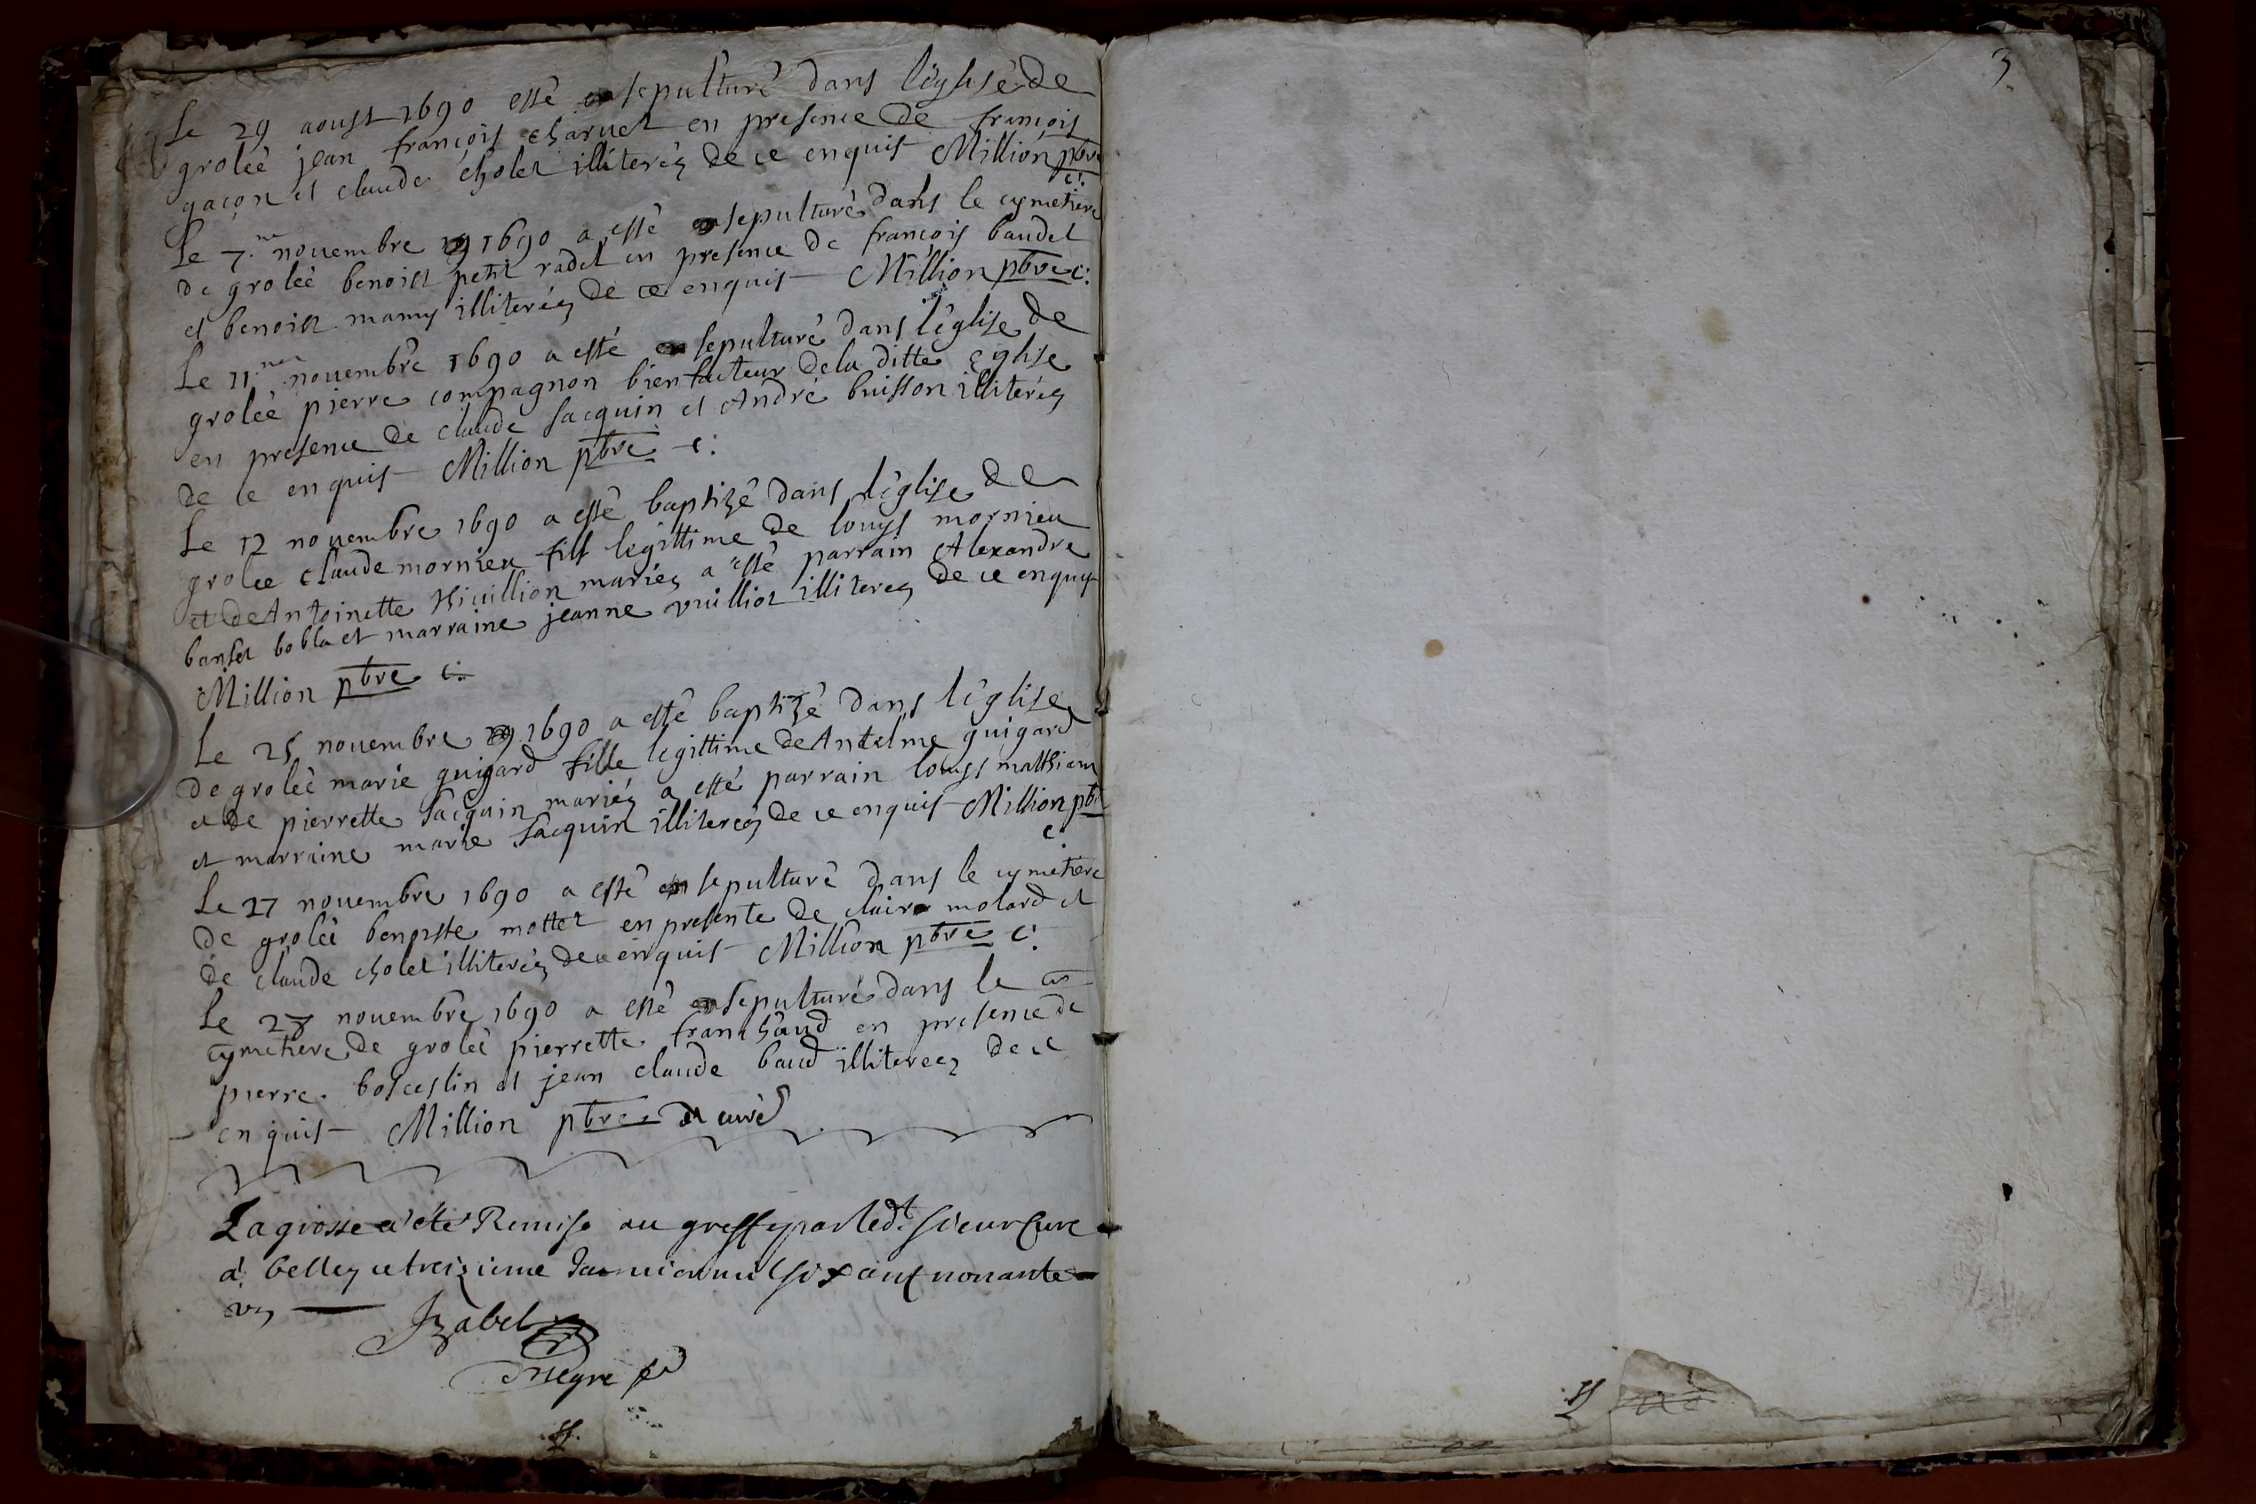 Le 29 aoust 1690 esté sepulturé dans l'église de
grolée jean françois charvet en presence de françois
gaçon et claude cholet illiterés de ce enquis Million pbre
c:
Le 7.me novembre 1690 a esté sepulturé dans le cymetiere
de grolée benoist petit radet en presence de françois baudet
et benoist mamy illiterés de ce enquis Million pbre c:
Le 11.me novembre 1690 a esté sepulturé dans l'église de
grolée pierre compagnon bienfacteur de la ditte eglise
en presence de claude sacquin et André buisson illiterés
de ce enquis Million pbre c:
Le 12 novembre 1690 a esté baptizé dans l'église de
grolee claude mornieu fils legittime de louys mornieu
et de Antoinette mariés a esté parrain Alexandre
bobla et marraine jeanne vuilliot illiterés de ce enquis
Million pbre c:
Le 25 novembre 1690 a esté baptizé dans l'église
de grolée marie guigard fille legittime de Antelme guigard
et de pierrette sacquin mariés a esté parrain louys matthieu
et marraine marie sacquin illiterés de ce enquis Million pbre
c:
Le 27 novembre 1690 a esté sepulturé dans le cymetiere
de grolée benoiste mottet en presente de claire molard et
de claude cholet illiterés de ce enquis Million pbre c:
Le 28 novembre 1690 a esté sepulturé dans le
cymetiere de grolée pierrette franchaud en presence de
pierre bosceslin et jean claude baud illiterees de ce
enquis Million pbre et curé
La grosse a été Remise au greffe par ledt sieur Curé
a belley ce treizieme Janvier mil six cent nonante
un Izabel
3